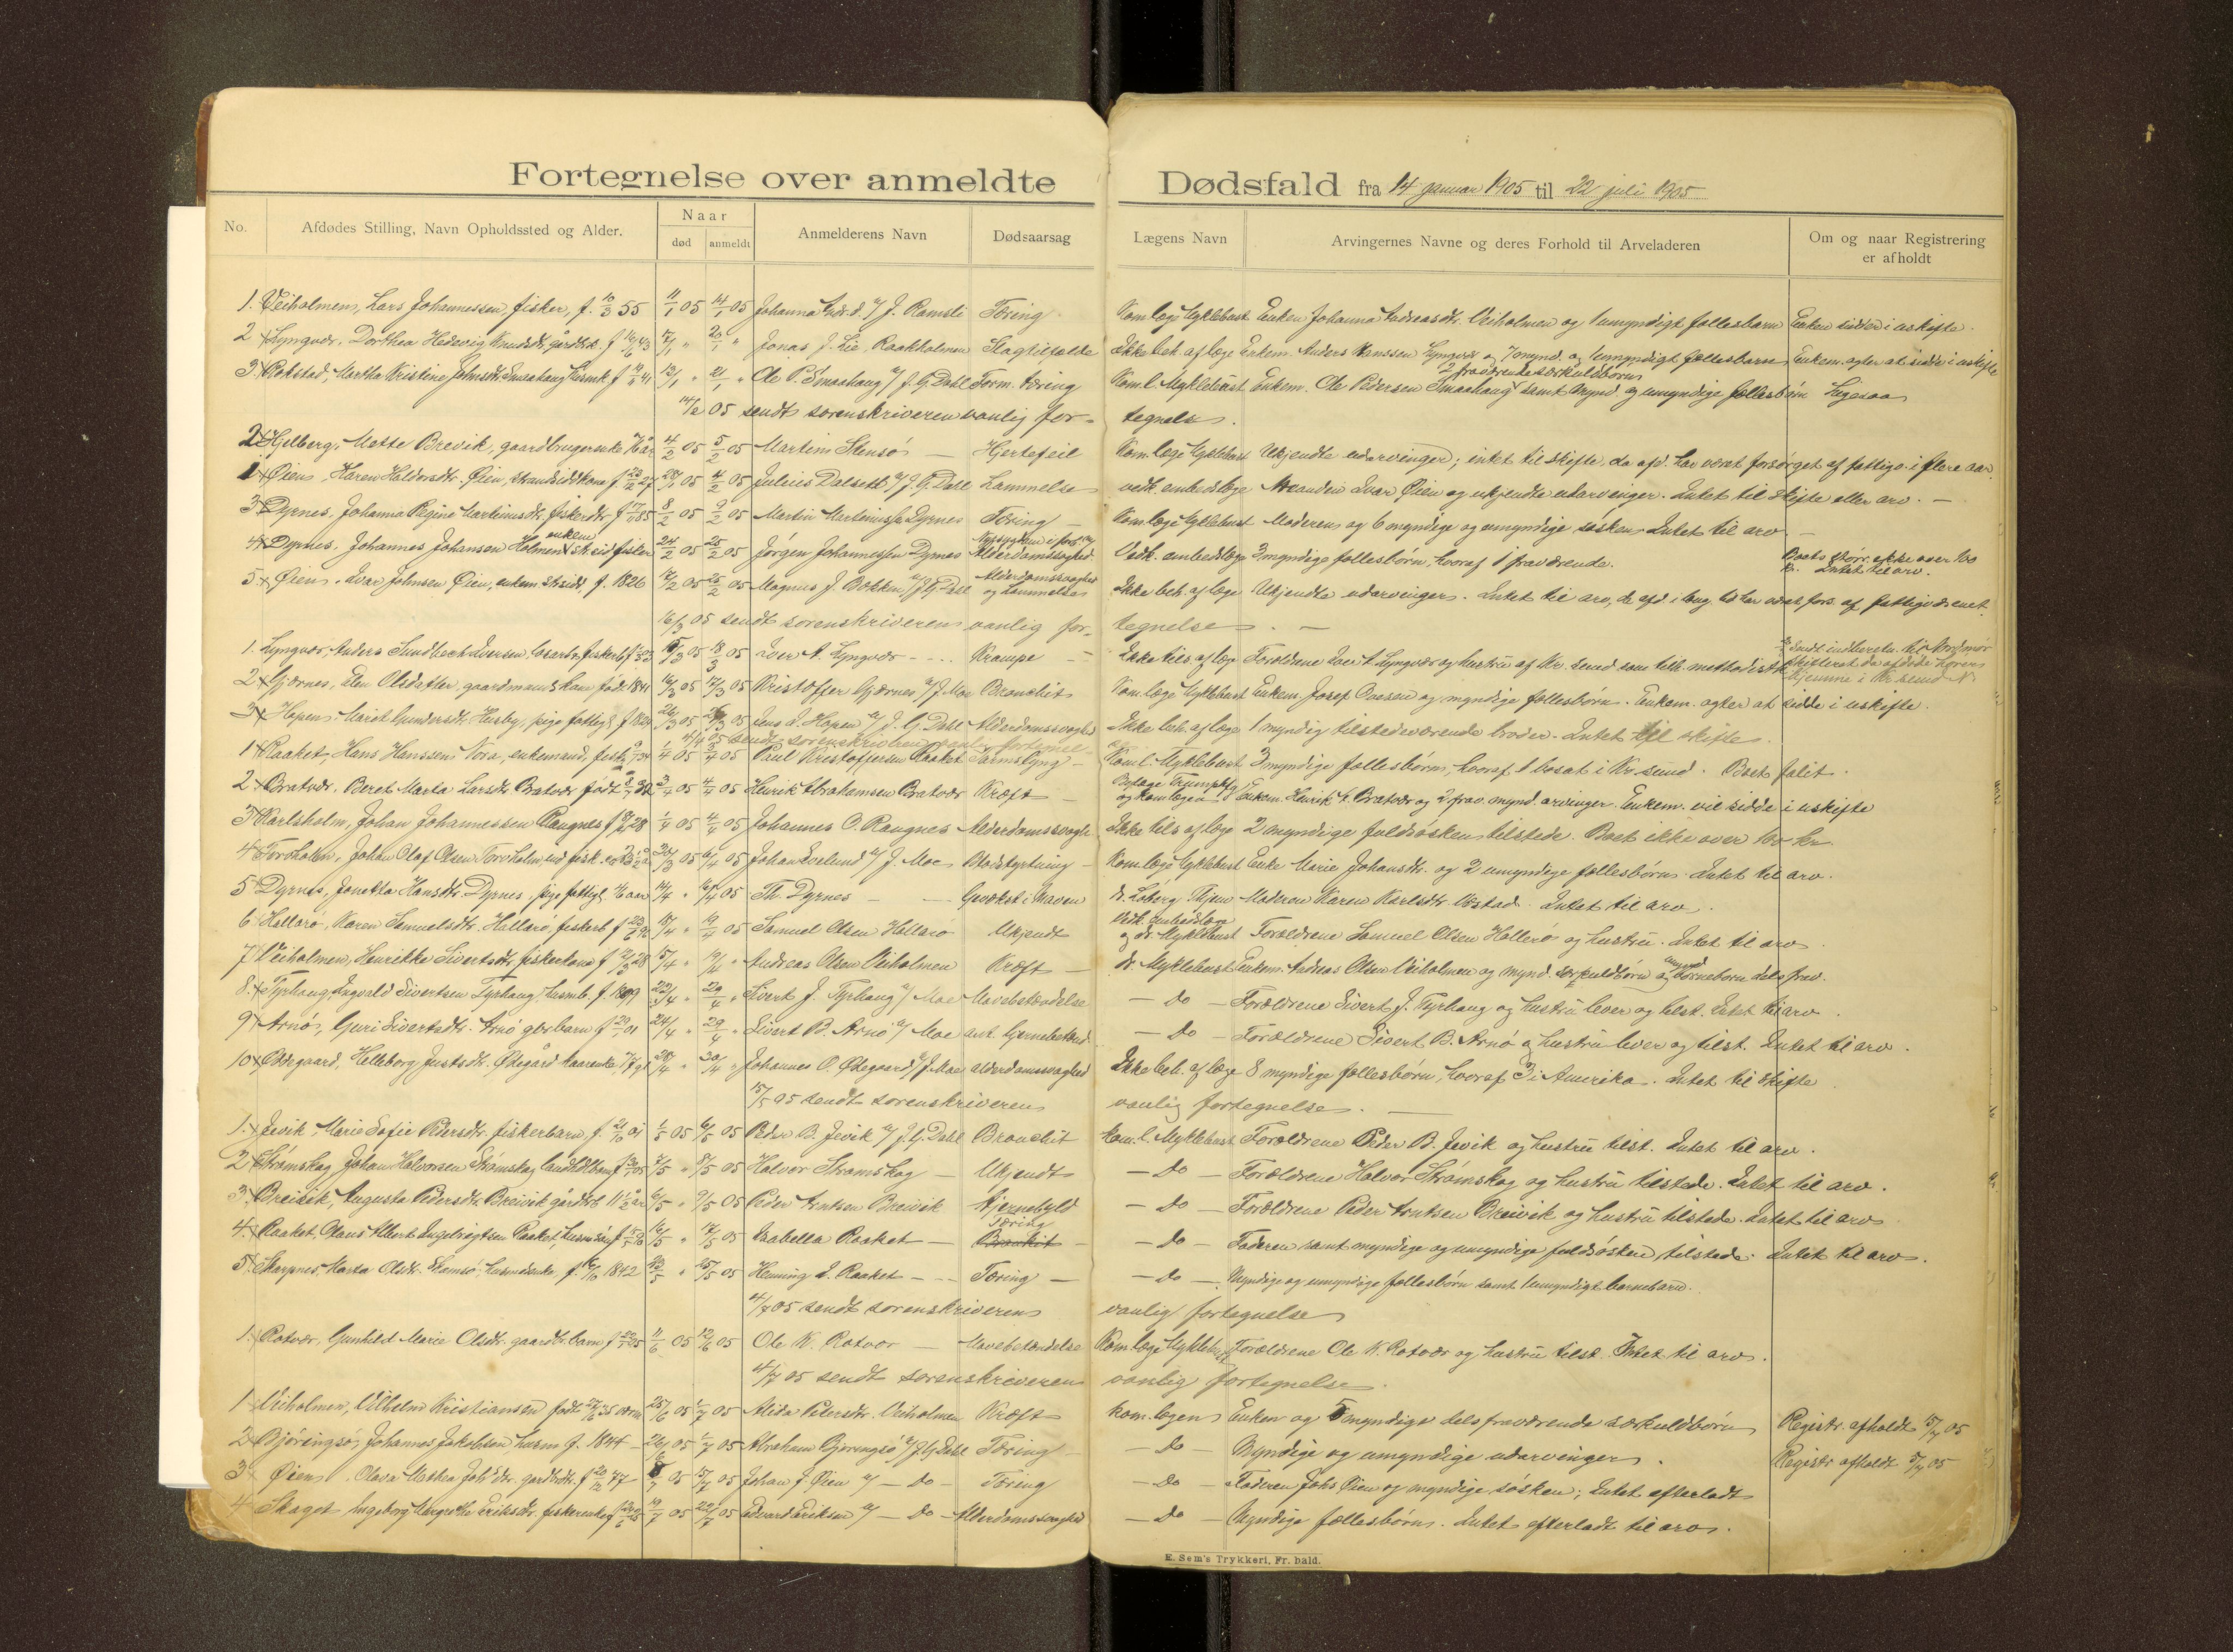 Fortegnelse over anmeldte Dødsfald fra 14 januar 1905 til 22 juli 1905
No. Afdødes Stilling, Navn Opholdssted og Alder. Naar død anmeldt Anmelderens Navn Dødsaarsag Lægens Navn Arvingernes Navne og deres Forhold til Arveladeren Om og naar Registrering er afholdt
1. Veiholmen, Lars Johannessen, fisker, f. 10/3 55 11/1 05 14/1 05 Johanna J. Ramsli Tæring Kom.læge Myklebust Enken Johanna Andreasdtr. Veiholmen og 1 umyndigt fællesbarn Enken sidder i uskifte.
2 Lyngvær, Dorthea Hedevig Knudsdtr. 17/1 " 20/1 " Jonas J. Lie, Raakholmen Slagtilfælde Ikke beh. af læge Enkem. Anders Hanssen Lyngvær og 7 mynd. og 1 umyndigt fællesbarn Enkem. agter at sidde i uskifte
3 Rokstad, Martha Kristine Johnsdtr. Smaahaug 41 13/1 " 21/1 " Ole P. Smaahaug v/ J. G. Dahl Form. tæring Kom.l. Myklebust Enkem. Ole Pedersen Smaahaug 2 fraværende særkuldbørn samt mynd. og umyndige fællesbørn Ligesaa
14/2 05 sendt sorenskriveren vanlig fortegnelse.
2 Hjelberg, Mette Brevik, gaardbrugerenke 76 år 4/2 05 5/2 05 Martin Stensø — Hjertefeil Kom.læge Myklebust Ukjendte udarvinger; intet til skifte, da afd. har været forsørget af fattigv. i flere aar
1 Øien, Karen Haldorsdtr. Øien, strandsidderkone f 23/2 27 28/1 05 4/2 05 Julius Dalseth v/ J. G. Dahl Lammelse vedk. embedslæge Manden Ivar Øien og ukjendte udarvinger. Intet til skifte eller arv. —
3 Dyrnes, Johanna Regine Martinusdtr. fiskerdtr. 85 8/2 05 9/2 05 Martin Martinussen Dyrnes Tæring — Kom.læge Myklebust Moderen og 6 myndige og umyndige søsken. Intet til arv —
4 Dyrnes, Johannes Johansen Holmen enkem. fisker 24/2 05 25/2 05 Jørgen Johannessen Dyrnes Alderdomssvaghed Vedk. embedslæge 3 myndige fællesbørn, hvoraf 1 fraværende. Boets størr. ikke over 100 kr. Intet til arv.
5 Øien, Ivar Johnsen Øien, enkem. strsidd. f. 1826 17/2 05 25/2 05 Magnus J. Bokken v/ J. G. Dahl Alderdomssvaghed og Lammelse Ikke beh. af læge Ukjendte udarvinger. Intet til arv, da afd. i lang tid har været fors. af fattigvæsenet
16/3 05 sendt sorenskriveren vanlig fortegnelse. —
1. Lyngvær, Anders Sundbech Iversen 18/3 05 Iver A. Lyngvær — Krampe — Ikke tils. af læge Forældrene Iver A. Lyngvær og hustru af Kr.sund som tilh. methodistk.
2 Gjærnes, Elen Olsdatter, gaardmandskone født 1841 16/3 05 17/3 05 Kristoffer Gjærnes v/ J. Moe Bronchit Kom.læge Myklebust Enkem. Josef Ovesen og myndige fællesbørn. Enkem. agter at sidde i uskifte.
3 Hopen, Marit Gundersdtr. Husby, pige fattigl. f 1824 26/3 05 Jens J. Hopen v/ J. G. Dahl Alderdomssvaghed Ikke beh. af læge 1 myndig tilstedeværende broder. Intet til skifte.
4/4 05 sendt sorenskriveren vanlig fortegnelse
1 Raaket, Hans Hanssen Vora, enkemand, 34 1/4 05 05 Paul Kristoffersen Raaket Tarmslyng — Kom.l. Myklebust 3 myndige fællesbørn, hvoraf 1 bosat i Kr.sund. Boet falit.
2 Bratvær, Beret Marta Larsdtr. Bratvær født 3/4 05 4/4 05 Henrik Abrahamsen Bratvær Kræft — og komlægen Enkem. Henrik A. Bratvær og 2 frav. mynd. arvinger. Enkem. vil sidde i uskifte
3 Karlsholm, Johan Johannessen Raugnes 28 1/4 05 4/4 05 Johannes O. Raugnes Alderdomssvaghed Ikke tils. af læge 2 myndige fuldsøsken tilstede. Boet ikke over 100 kr.
4 Forsholm, Johan Olaf Olsen Forsholm 05 6/4 05 Johan v/ J. Moe Blodstyrtning — Kom.læge Myklebust Enke Marie Johansdtr. og 2 umyndige fællesbørn. Intet til arv.
5 Dyrnes, Jonetta Hansdtr. Dyrnes, pige fattigl. 14/4 " 16/4 05 Th. Dyrnes — Gevækst i Maven Moderen Karen Karlsdtr. Intet til arv.
6 Hallarø, Karen Samuelsdtr. Hallarø, fiskerb. 18/4 " 19/4 05 Samuel Olsen Hallarø Ukjendt Vedk. embedslæge og dr. Myklebust Forældrene Samuel Olsen Hallarø og hustru. Intet til arv.
7 Veiholmen, Henrikke Sivertsdtr. fiskerkone f 28 15/4 " 19/4 " Andreas Olsen Veiholmen Kræft — dr. Myklebust Enkem. Andreas Olsen Veiholmen og mynd. særkuldbørn og umynd. børnebørn dels frav.
8. Tyrhaug, Ingvald Sivertsen Tyrhaug, husmb. f. 1899 23/4 " 29/4 " Sivert J. Tyrhaug v/ Moe Mavebetændelse — Do — Forældrene Sivert J. Tyrhaug og hustru lever og tilst. Intet til arv.
9 Arnø, Guri Sivertsdtr. Arnø gbr.barn f 01 24/4 " 29/4 " Sivert B. Arnø v/ Moe ant. hjernebetænd. — Do — Forældrene Sivert B. Arnø og hustru lever og tilst. Intet til arv.
10 Ødegaard, Helleborg Justsdtr. Ødegård 28/4 " 30/4 " Johannes O. Ødegaard v/ J. Moe alderdomssvaghed Ikke beh. af læge 8 myndige fællesbørn, hvoraf 3 i Amerika. Intet til skifte
15/5 05 sendt sorenskriveren vanlig fortegnelse. —
1. Jevik, Marie Sofie Pedersdtr. fiskerbarn, f. 21/10 01 1/5 05 6/5 05 Peder B. Jevik v/ J. G. Dahl Bronchit Kom.l. Myklebust Forældrene Peder B. Jevik og hustru tilst. Intet til arv.
2 Strømskag, Johan Halvorsen Strømskag 05 " 8/5 05 Halvor Strømskag — Ukjendt — Do — Forældrene Halvor Strømskag og hustru tilstede. Intet til arv.
3. Breivik, Augusta Pedersdtr. Breivik 11½ år 6/5 " 9/5 05 Peder Knutsen Breivik Hjernebyld — Do — Forældrene Peder Knutsen Breivik og hustru tilstede. Intet til arv
4. Raaket, Olaus Albert Ingebrigtsen Raaket, 16/5 " 05 Isabella Raaket — Tæring — Do — Faderen samt myndige og umyndige fuldsøsken, tilstede. Intet til arv.
5. Skarpnes, Marta Olsdtr. Stensø, husmdenke, f. 1842 23/5 " 25/5 05 Henning J. Raaket — Tæring — — do — Myndige og umyndige fællesbørn samt 1 umyndigt barnebarn.
4/7 05 sendt sorenskriveren vanlig fortegnelse
1. Rotvær, Gunhild Marie Olsdtr. gaardbr.barn f 05 11/6 05 12/6 05 Ole K. Rotvær — Mavebetændelse Kom.læge Myklebust Forældrene Ole K. Rotvær og hustru tilst. Intet til arv.
4/7 05 sendt sorenskriveren vanlig fortegnelse.
1 Veiholmen, Vilhelm Kristiansen født 35 25/6 05 1/7 05 Alida Petersdtr. Veiholmen Kræft kom.lægen Enken og 5 myndige dels fraværende særkuldbørn Registr. afholdt 15/7 05
2 Bjøringsø, Johannes Jakobsen husm. f. 1844 — 26/6 05 1/7 05 Abraham Bjøringsø v/ J. G. Dahl Tæring — — Do — Myndige og umyndige udarvinger. Registr. afholdt 5/7 05
3 Øien, Olava Mathea Johsdtr. gardbrdtr. f 20/12 77 05 15/7 05 Johan J. Øien v/ — Do — Tæring — Do — Faderen Johs Øien og myndige søsken; Intet efterladt
4 Skaget Ingeborg Margrethe Eriksdtr. fiskerenke 19/7 05 22/7 05 Edvard Eriksen v/ — Do — Alderdomssvaghed — Do — Myndige fællesbørn. Intet efterladt til arv.
E. Sem's Trykkeri, Fr.hald.